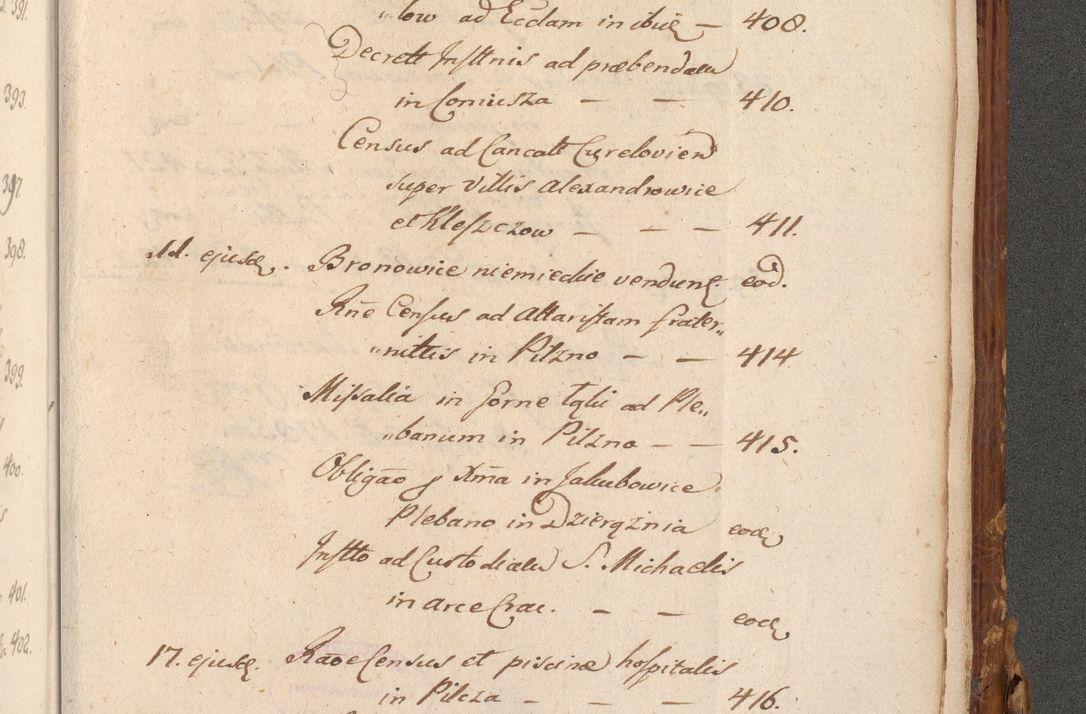 „low ad Eccłam in ibid — 408.
Decrett Insttnis ad præbendam
in Coniusza — — 410.
Census ad Cancatt Cyrelovien
super Villis Alexandrowice
et Kleszczow — — — 411.
11. ejusd. Bronowice niemieckie vendunt. eod.
Rñe Census ad Altaristam frater„
„nittis in Pilzno — — 414
Missalia in forne ad Ple„
„banum in Pilzno — — 415.
Obligão in Jakubowice
Plebano in Dzierążnia eod
Instto ad Custodiam S. Michaelis
in arce Crac. — — eod
17. ejusd. Rãoe Census et piscinæ hospitalis
in Pilcza — — — 416.
393.
397.
398.
399.
400.
401.
402.